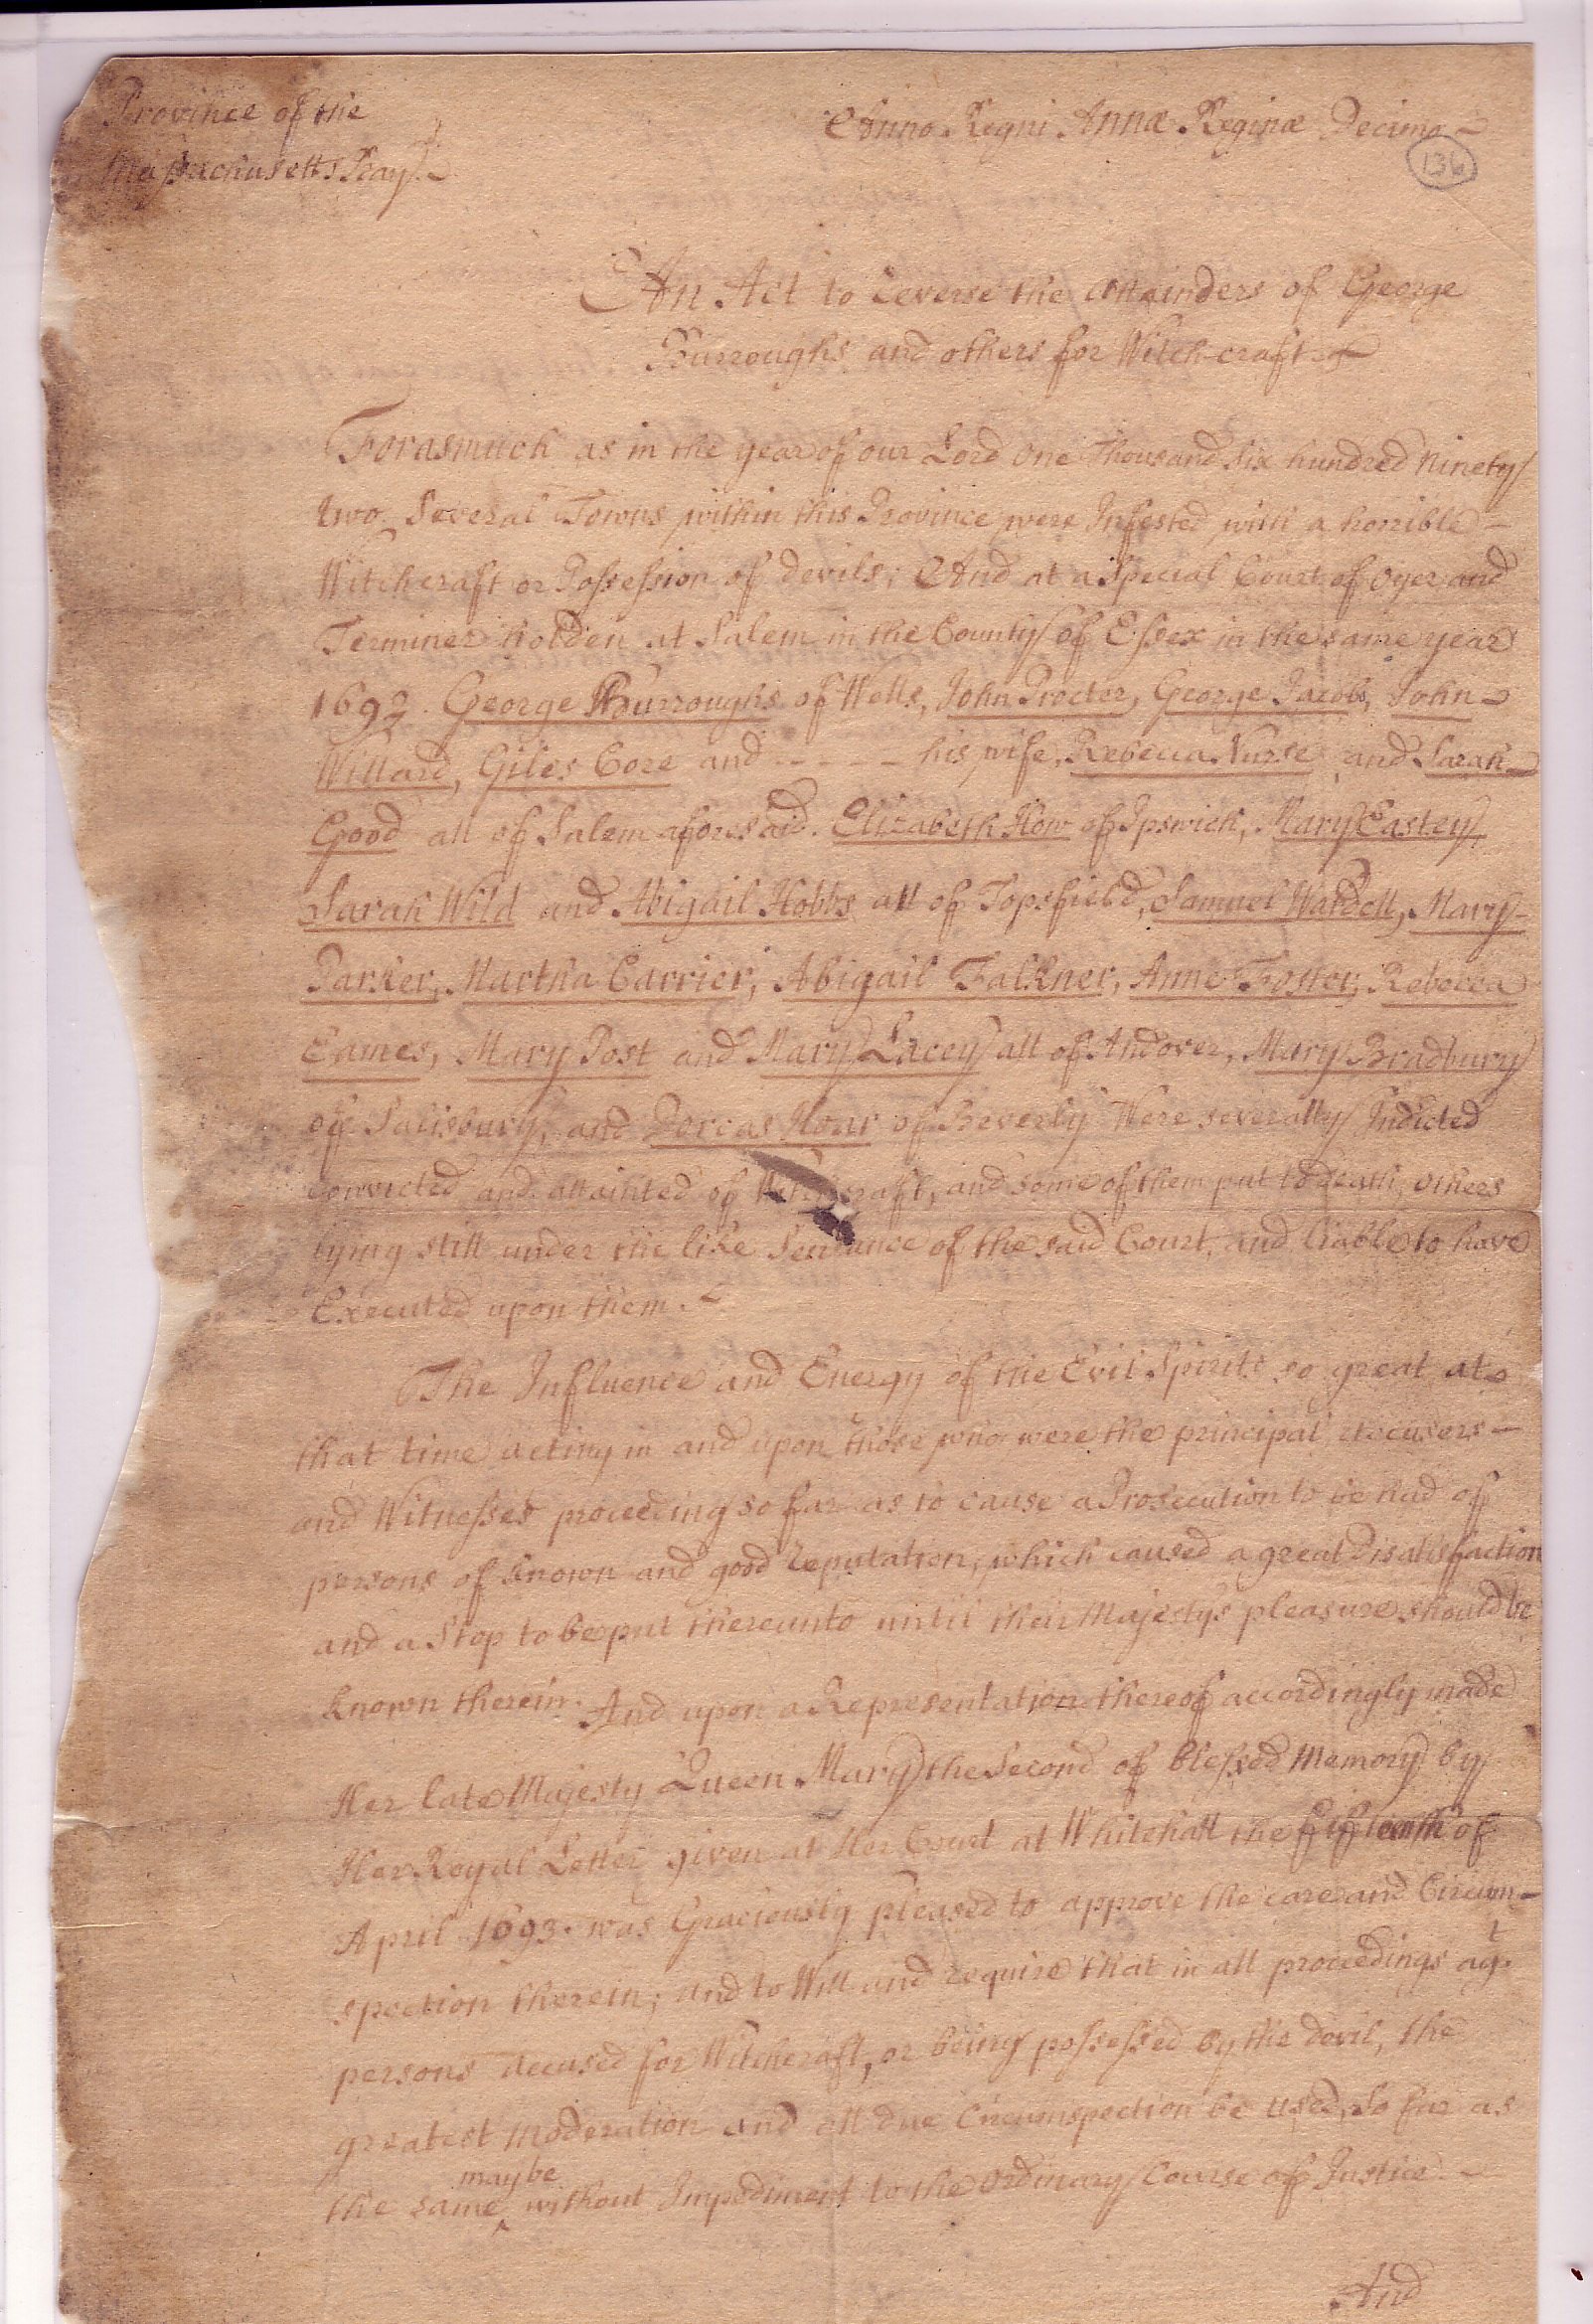 Province of the
Massachusetts Bay
Anno Regni Annæ Reginæ Decimo
136
An Act to reverse the attainders of George
Burroughs and others for Witch-craft
Forasmuch as in the year of our Lord one Thousand Six hundred Ninety
two Several Towns within this Province were Infested with a horrible
Witchcraft or Possession of devils; And at a Special Court of Oyer and
Terminer holden at Salem in the County of Essex in the same year
1692. George Burroughs of Wells, John Procter, George Jacob, John
Willard, Giles Core and - - - - - his wife, Rebecca Nurse and Sarah
Good all of Salem aforesaid. Elizabeth How of Ipswich, Mary Eastey,
Sarah Wild and Abigail Hobbs all of Topsfield, Samuel Wardell, Mary
Parker, Martha Carrier, Abigail Falkner, Anne Foster, Rebecca
Eames, Mary Post and Mary Lacey all of Andover, Mary Bradbury
of Salisbury, and Dorcas Hoar of Beverly Were severally Indicted
convicted and attainted of Witchcraft, and some of them put to death, others
lying still under the like Sentance of the said Court, and liable to have
Executed upon them.
The Influence and Energy of the Evil Spirits so great at
that time acting in and upon those who were the principal accusers
and Witnesses proceeding so far as to cause a Prosecution to be had of
persons of known and good reputation, which caused a great Disatisfaction
and a Stop to be put thereunto until their Majestys pleasure should be
known therein. And upon a Representation thereof accordingly made
Her late Majesty Queen Mary the Second of blessed Memory by
Her Royal Letter given at Her Court at Whitehall the fifteenth of
April 1693. was Graciously pleased to approve the care and Circum-
spection therein; and to Will and require that in all proceedings agt.
persons accused for Witchcraft, or being possessed by the devil, the
greatest Moderation and all due Circumspection be used, So far as
the same maybe without Impediment to the Ordinary Course of Justice.
And